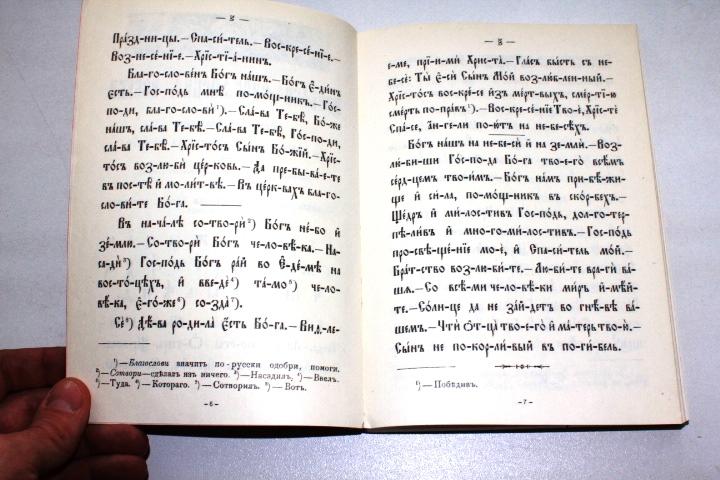 Пра́зд-ни-цы.—Спа-си́-тель.—Вос-кре-се́-нїе.—
Воз-не-се́-нїе.—Хрїс-тїа́-нин.
Бла-го-сло-ве́н Бо́г на́шъ.—Бо́гъ Є҆-ди́н
Є҆сть.—Гос-по́дь мнѣ̀ по-мо́щ-никъ.—Го́с-
по-ди, бла-го-сло-вѝ ¹).—Сла́-ва Те-бѣ̀, Бо́-же
на́шъ, сла́-ва Те-бѣ̀.—Сла́-ва Те-бѣ̀, Го́с-по-ди,
сла́-ва Те-бѣ̀.—Хрїс-то́съ Сы́нъ Бо́-жїй.—Хрїс-
то́съ воз-лю-бѝ це́р-ковь.—Да пре-бы-ва́-е-те
въ пос-тѣ̀ и҆ мо-ли́т-вѣ.—Въ це́рк-вахъ бла-го-
сло-ви́-те Бо́-га.
Въ на-ча́-лѣ со-тво-рѝ ²) Бо́гъ не́-бо и҆
зе́м-лю.—Со-тво-рѝ Бо́гъ че-ло-вѣ́-ка.—На-
са-дѝ ³) Гос-по́дь Бо́гъ ра́й во Є҆-де́-мѣ на
вос-то́-цѣхъ, и҆ вве-дѐ ⁴) та́-мо ⁵) че-ло-
вѣ́-ка, є҆-го́-же ⁶) со-зда̀ ⁷).
Сѐ ⁸) Дѣ́-ва ро-ди-ла̀ Є҆сть Бо́-га.—Виѳ-ле-
¹)—Благослови значитъ по-русски одобри, помоги.
²)—Сотвори—сдѣлалъ изъ ничего. ³)—Насадилъ. ⁴)—Ввелъ.
⁵)—Туда. ⁶)—Котораго. ⁷)—Сотворилъ. ⁸)—Вотъ.
-6-
е́-ме, прї-и-мѝ Хрис-та̀.—Гла́съ бы́сть съ не-
бе-сѐ: Ты̀ Є҆-сѝ Сы́нъ Мо́й воз-лю́б-лен-ный.—
Хрїс-то́съ вос-кре́-се и҆з ме́рт-выхъ, сме́р-тї-ю
сме́рть по-пра́въ ¹).—Вос-кре-се́-нїе Тво-ѐ, Хрїс-тѐ
Спа́-се, а҆́н-ге-ли по-ю́тъ на не-бе-сѣ́хъ.
Бо́гъ на́шъ на не-бе-сѝ и҆ на зе-млѝ.—Воз-
лю́-би-ши Го́с-по-да Бо́-га тво-е-го̀ всѣ́мъ
се́рд-цемъ тво-и́мъ.—Бо́гъ на́мъ при-бѣ́-жи-
ще и҆ си́-ла, по-мо́щ-никъ въ ско́р-бехъ.—
Ще́дръ и҆ ми́-лос-тивъ Гос-по́дь, дол-го-тер-
пѣ-ли́въ и҆ мно-го-ми́-лос-тивъ.—Гос-по́дь
про-свѣ-ще́-нїе мо-ѐ, и҆ Спа-си́-тель мо́й.—
Бра́т-ство воз-лю-би́-те.—Лю-би́-те вра-гѝ ва́-
шѧ.—Со всѣ́-ми че-ло-вѣ́-ки ми́ръ и҆-мѣ́й-
те.—Со́лн-це да не за́й-детъ во гнѣ́-вѣ ва́-
шемъ.—Чтѝ Ѻ҆т-ца̀ тво-е-го̀ и҆ ма́-терь тво-ю̀.—
Сы́нъ не по-ко́р-ли-вый въ по-ги́-бель.
¹)—Побѣдивъ.
-7-